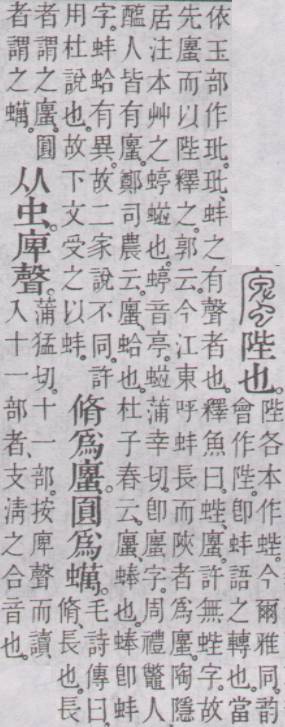 陛也。
陛各本作蜌。今爾雅同。韵
會作陛。卽蚌語之轉也。當
依玉部作玭。玭、蚌之有聲者也。釋魚曰。蜌、蠯。許無蜌字。故
先蠯而以陛釋之。郭云。今江東呼蚌長而陜者爲蠯。陶隱
居注本艸之蝏䗒也。蝏音亭。䗒蒲幸切。卽蠯字。周禮鼈人、
醢人皆有蠯。鄭司農云。蠯、蛤也。杜子春云。蠯、蜯也。蜯卽蚌
字。蚌蛤有異。故二家說不同。許
用杜說也。故下文受之以蚌。
脩爲蠯。圓爲蠇。
毛詩傳曰。
脩、長也。長
者謂之蠯。圓
者謂之蠇。
从虫。庳聲。
蒲猛切。十一部。按庳聲而讀
入十一部者、支淸之合音也。